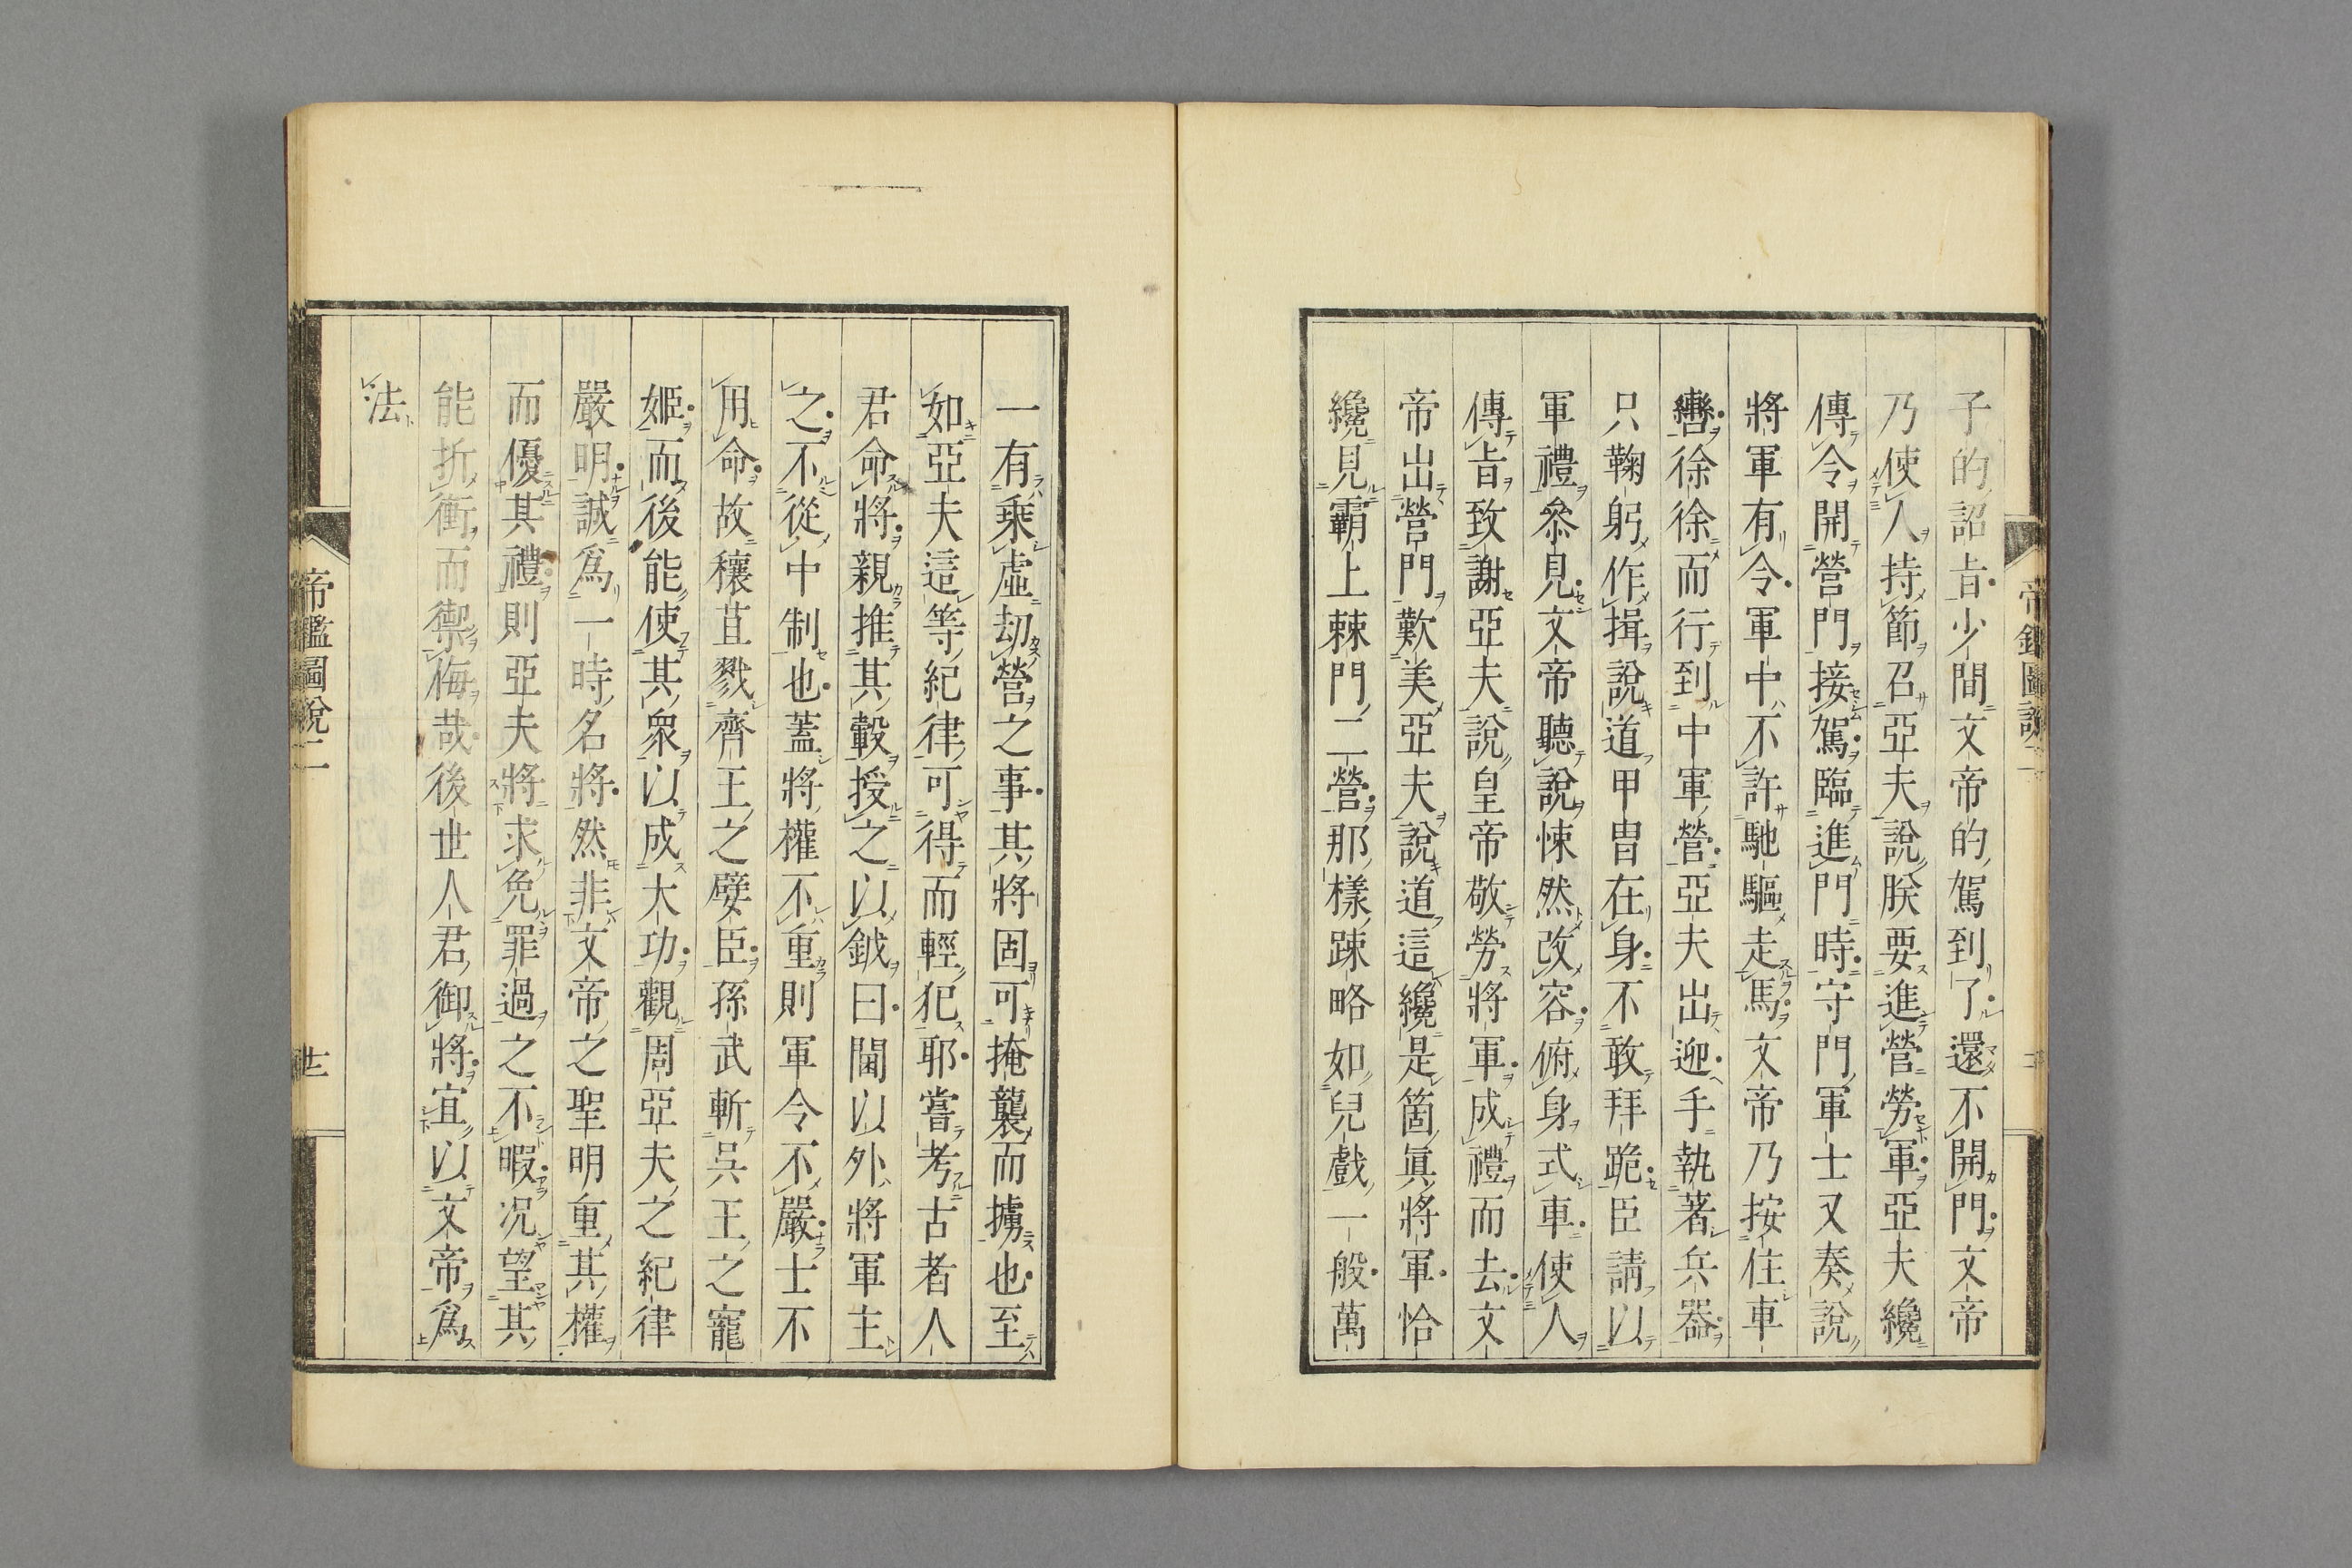 子的詔旨少間文帝的駕到了還不開門文帝
乃使人持節召亞夫說朕要進營勞軍亞夫纔
傳令開營門接駕臨進門時守門軍士又奏說
將軍有令軍中不許馳驅走馬文帝乃按住車
轡徐徐而行到中軍營亞夫出迎手執著兵器
只鞠躬作揖說道甲冑在身不敢拜跪臣請以
軍禮叅見文帝聽說悚然改容俯身式車使人
傳旨致謝亞夫說皇帝敬勞將軍成禮而去文
帝出營門歎美亞夫說道這纔是箇眞將軍恰
纔見霸上棘門二營那樣踈略如兒戲一般萬
一有乘虛劫營之事其將固可掩襲而擄也至
如亞夫這等紀律可得而輕犯耶嘗考古者人
君命將親推其轂授之以鉞曰閫以外將軍主
之不從中制也蓋將權不重則軍令不嚴士不
用命故穰苴戮齊王之嬖臣孫武斬吳王之寵
姬而後能使其衆以成大功觀周亞夫之紀律
嚴明誠爲一時名將然非文帝之聖明重其權
而優其禮則亞夫將求免罪過之不暇況望其
能折衝而禦侮哉後世人君御將宜以文帝爲
法
帝鑑圖說二